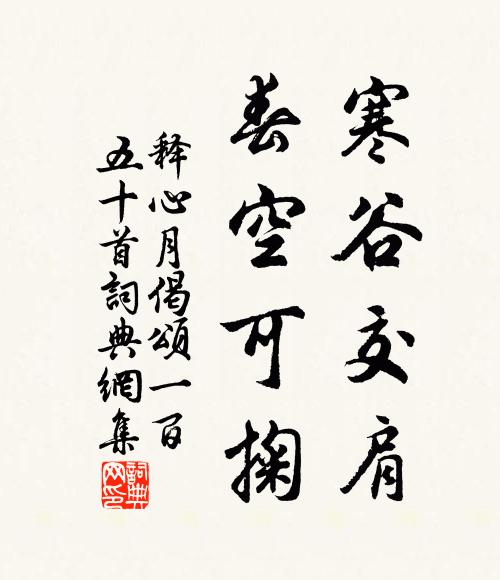 寒谷交肩
春空可掬
释心月偈頌一百
五十首詞典網集
詞典網印